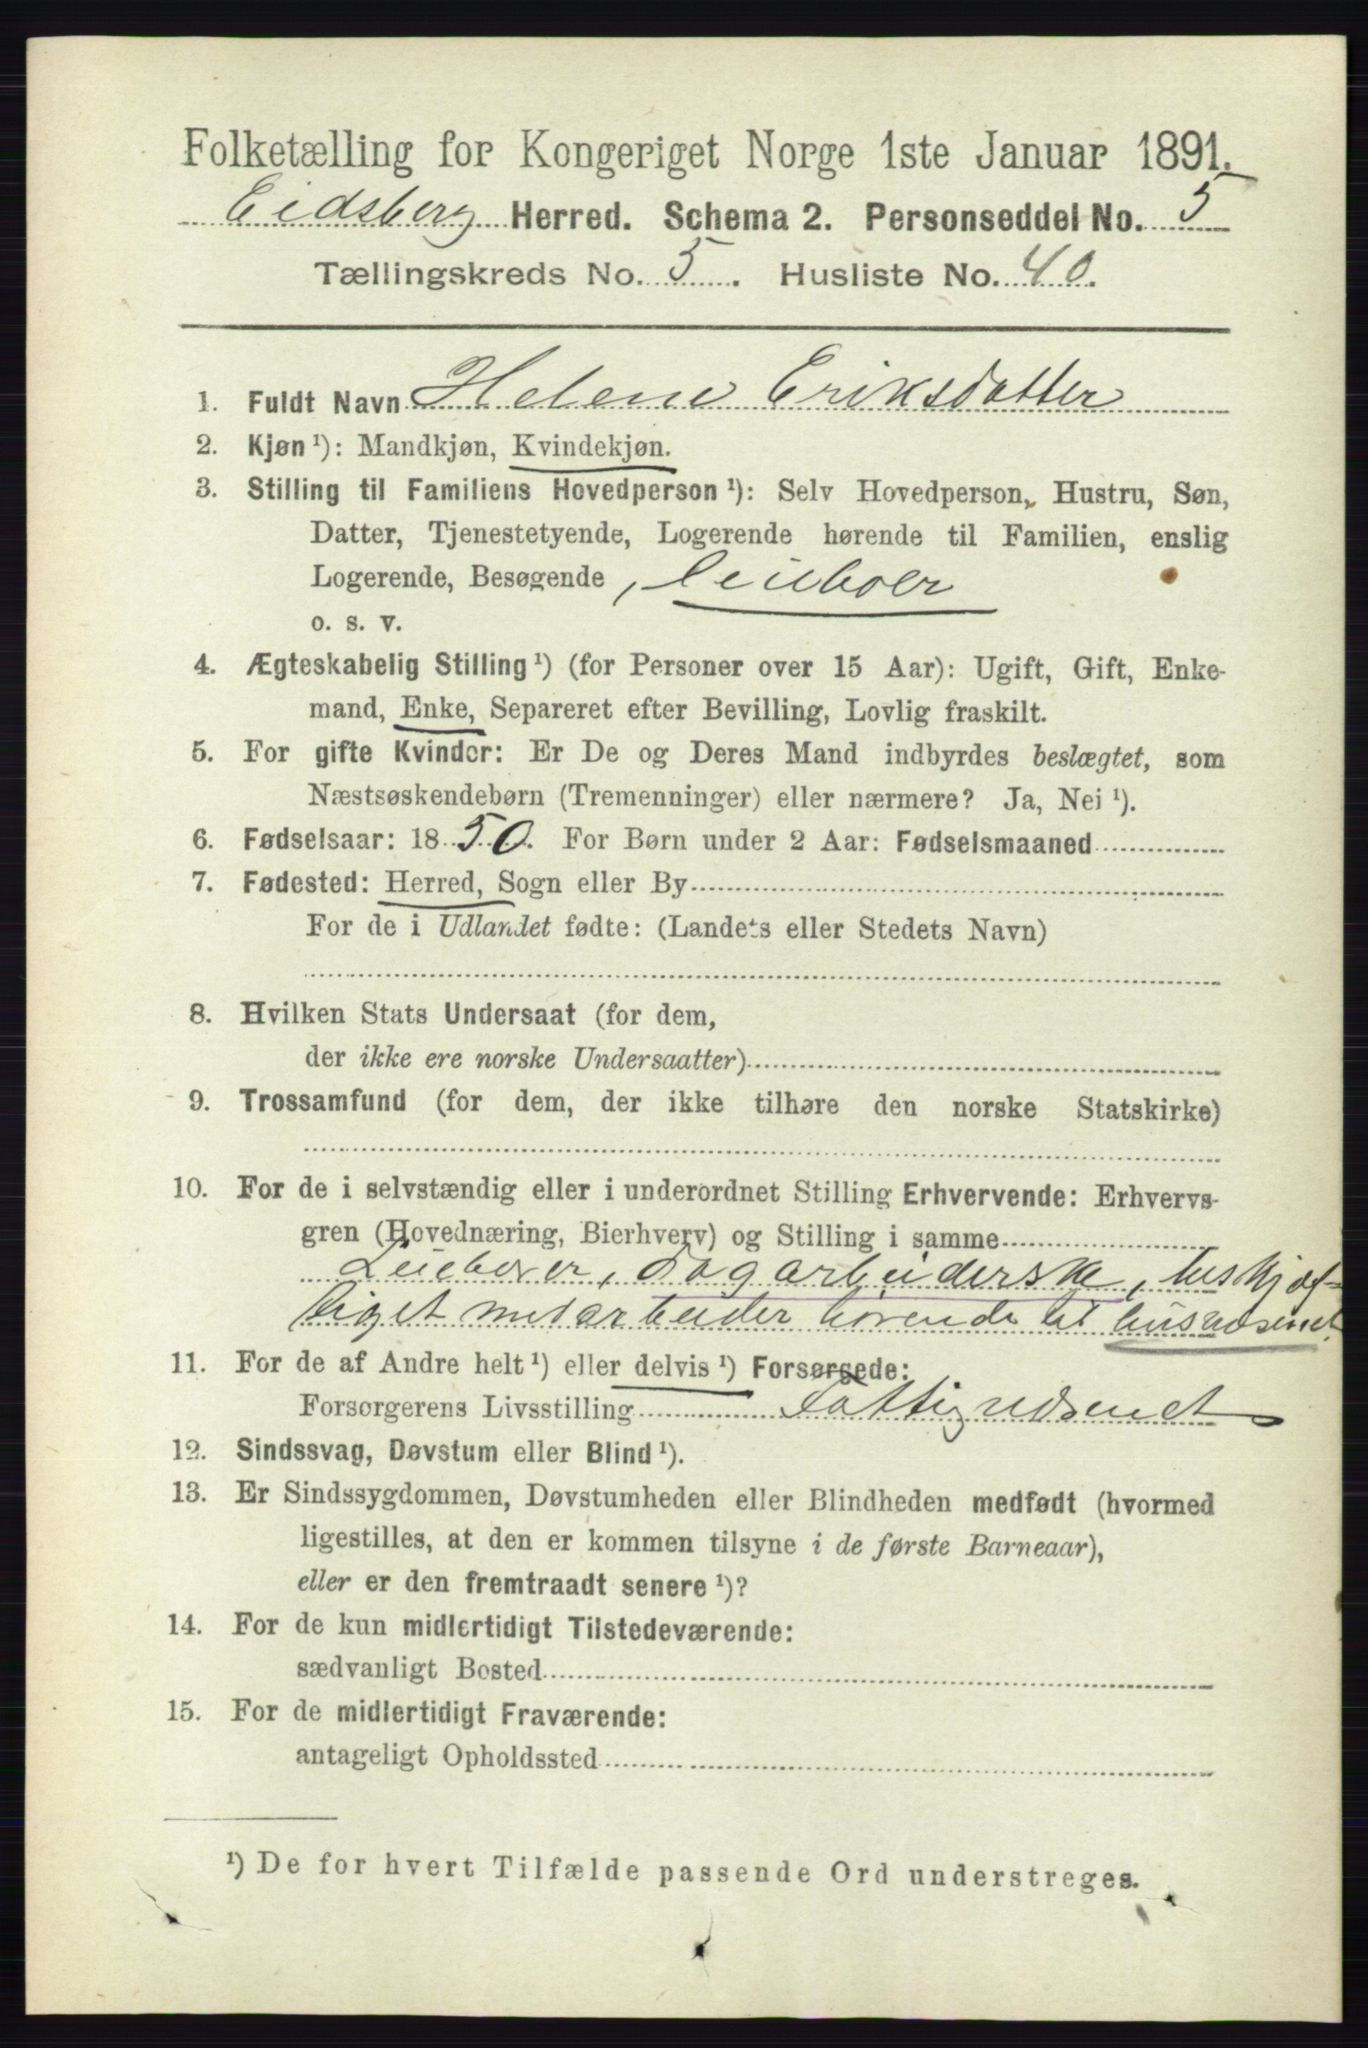 Folketælling for Kongeriget Norge 1ste Januar 1891.
Eidsberg Herred. Schema 2. Personseddel No. 5
Tællingskreds No. 5. Husliste No. 40.
1. Fuldt Navn Helene Eriksdatter
2. Kjøn ¹): Mandkjøn, Kvindekjøn.
3. Stilling til Familiens Hovedperson ¹): Selv Hovedperson, Hustru, Søn,
Datter, Tjenestetyende, Logerende hørende til Familien, enslig
Logerende, Besøgende, leieboer
o. s. v.
4. Ægteskabelig Stilling ¹) (for Personer over 15 Aar): Ugift, Gift, Enke-
mand, Enke, Separeret efter Bevilling, Lovlig fraskilt.
5. For gifte Kvinder: Er De og Deres Mand indbyrdes beslægtet, som
Næstsøskendebørn (Tremenninger) eller nærmere? Ja, Nei ¹).
6. Fødselsaar: 1850. For Børn under 2 Aar: Fødselsmaaned
7. Fødested: Herred, Sogn eller By
For de i Udlandet fødte: (Landets eller Stedets Navn)
8. Hvilken Stats Undersaat (for dem,
der ikke ere norske Undersaatter)
9. Trossamfund (for dem, der ikke tilhøre den norske Statskirke)
10. For de i selvstændig eller i underordnet Stilling Erhvervende: Erhvervs-
gren (Hovednæring, Bierhverv) og Stilling i samme
Leieboer, dagarbeiderske, beskjæf-
tiget med arbeider hørende til husvæsenet
11. For de af Andre helt ¹) eller delvis ¹) Forsørgede:
Forsørgerens Livsstilling Fattigvæsenet
12. Sindssvag, Døvstum eller Blind ¹).
13. Er Sindssygdommen, Døvstumheden eller Blindheden medfødt (hvormed
ligestilles, at den er kommen tilsyne i de første Barneaar),
eller er den fremtraadt senere ¹)?
14. For de kun midlertidigt Tilstedeværende:
sædvanligt Bosted
15. For de midlertidigt Fraværende:
antageligt Opholdssted
¹) De for hvert Tilfælde passende Ord understreges.